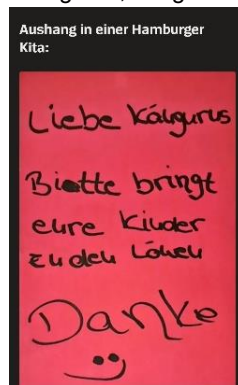 Aushang in einer Hamburger
Kita:
Liebe Kängurus
Biette bringt
eure Kinder
zu den Löwen
Danke